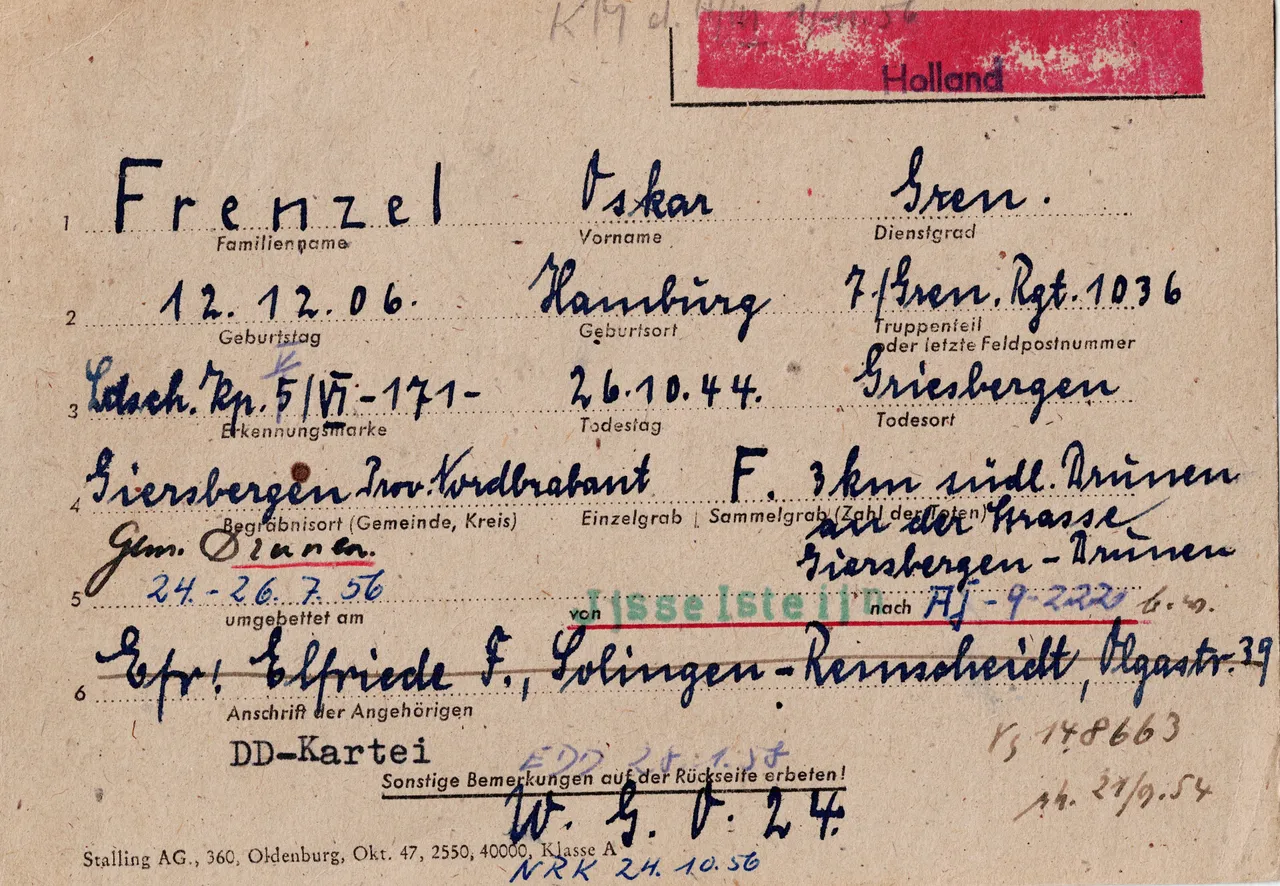 Holland
1 Frenzel Oskar Gren.
Familienname Vorname Dienstgrad
2 12.12.06. Hamburg 7/Gren.Rgt.1036
Geburtstag Geburtsort Truppenteil
oder letzte Feldpostnummer
V
3 Ldsch.Kp.5/VI-171- 26.10.44. Griesbergen
Erkennungsmarke Todestag Todesort
4 Giersbergen Prov. Nordbrabant F. 3km südl. Drünen
Begräbnisort (Gemeinde, Kreis) Einzelgrab | Sammelgrab (Zahl der Toten)
an der Strasse
Gem. Drunen.
Giersbergen-Drünen
5 24.-26. 7. 56 von Ijsselsteijn nach AJ-9-222
umgebettet am
6 Efr! Elfriede F., Solingen-Remscheidt, Olgastr.39
Anschrift der Angehörigen
148663
DD-Kartei
EDD 28.1.58
Sonstige Bemerkungen auf der Rückseite erbeten!
21/9.54
W. G. O. 24.
Stalling AG., 360, Oldenburg, Okt. 47, 2550, 40000, Klasse A
NRK 24.10.56